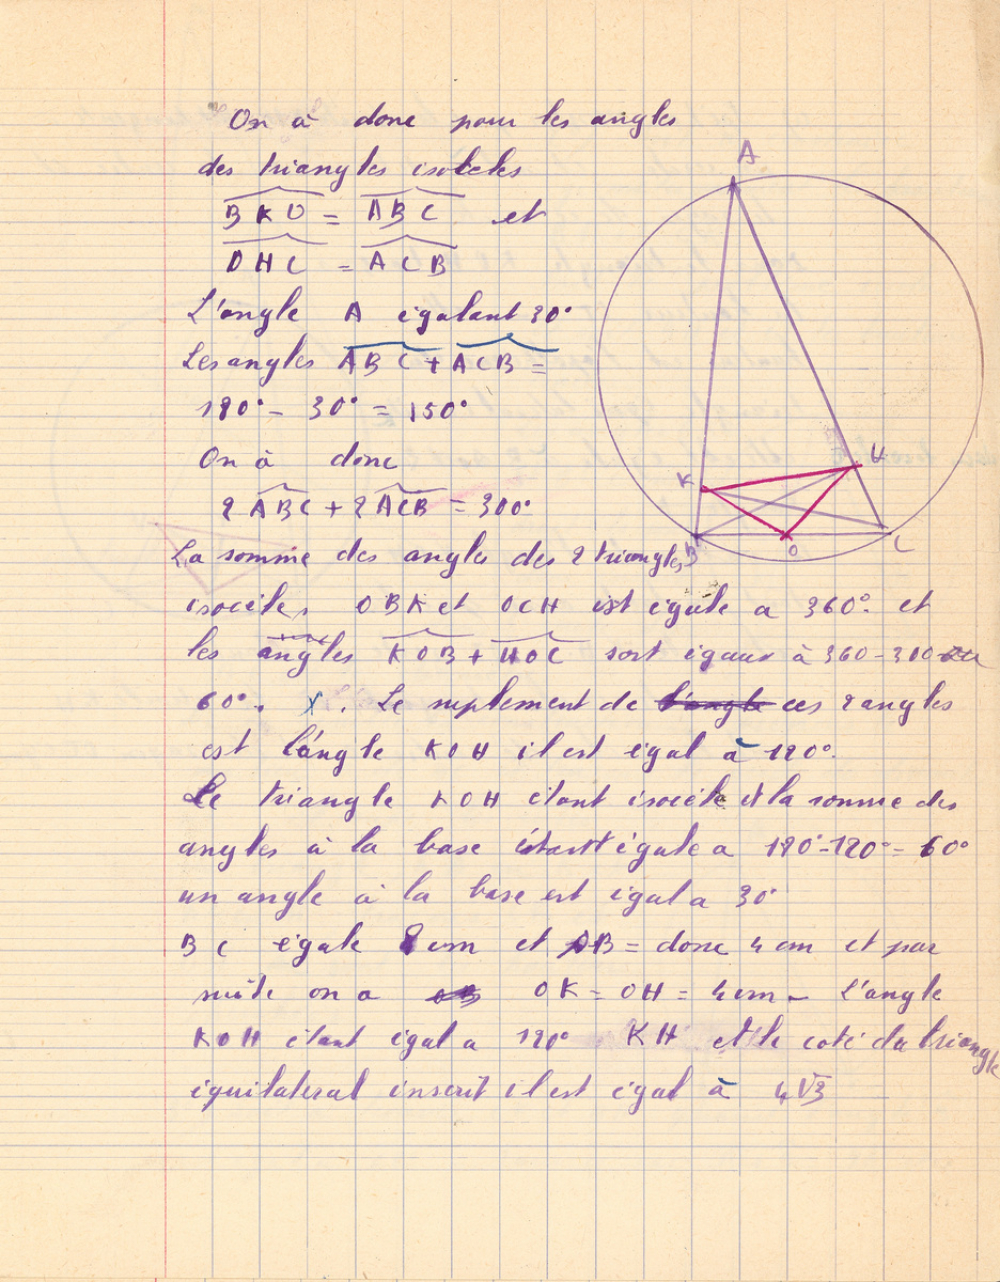 On à donc pour les angles
des triangles isoceles
BKO = ABC et
OHC = ACB
L'angle A égalant 30°
Les angles ABC + ACB =
180° - 30° = 150°
On à donc
2 ABC + 2 ACB = 300°
La somme des angles des 2 triangles
isocèles OBK et OCH est égale a 360° et
les angles KOB + HOC sont égaux à 360 - 300
60°. X. Le suplement de l'angle ces 2 angles
est l'angle KOH il est égal à 120°.
Le triangle KOH étant isocèle et la somme des
angles à la base étant égale a 180° - 120° = 60°
un angle à la base est égal a 30°
BC égale 8 cm et OB = donc 4 cm et par
suite on a OK = OH = 4 cm - L'angle
KOH étant égal a 120° KH est le coté du triangle
équilateral inscrit il est égal à 4√3
A
K
H
B
O
C